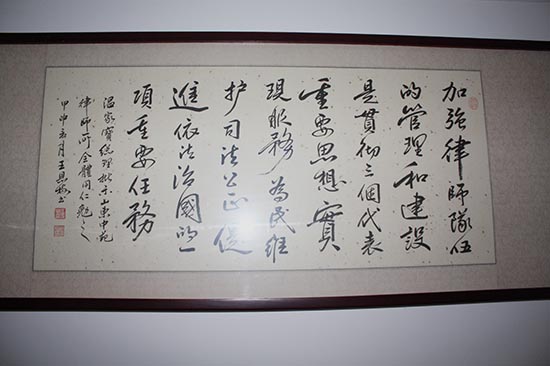 加強律師隊伍
的管理和建設
是貫彻三個代表
重要思想實
現服務為民維
护司法公正促
進依法治國的一
項重要任務
温家寶總理批示山東中苑
律師所全體同仁勉之
甲申月王书